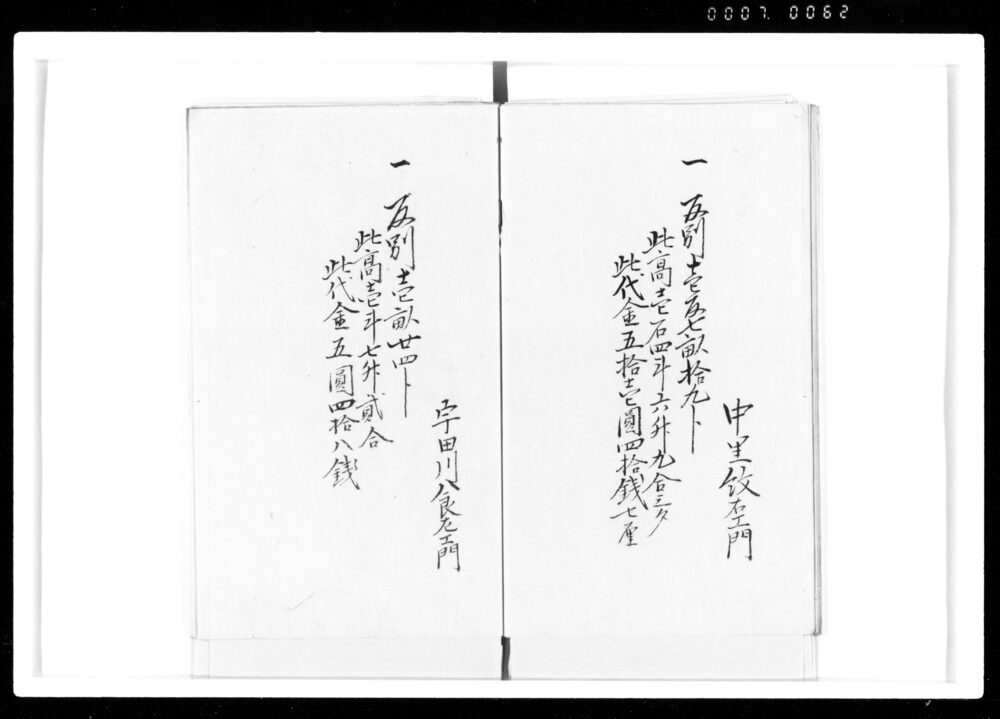 0007. 0062
中里紋右エ門
一 反別壱反七畝拾九卜
此高壱石四斗六升九合三夕
此代金五拾壱圓四拾銭七厘
宇田川八良左エ門
一 反別壱畝廿四卜
此高壱斗七升貳合
此代金五圓四拾八銭